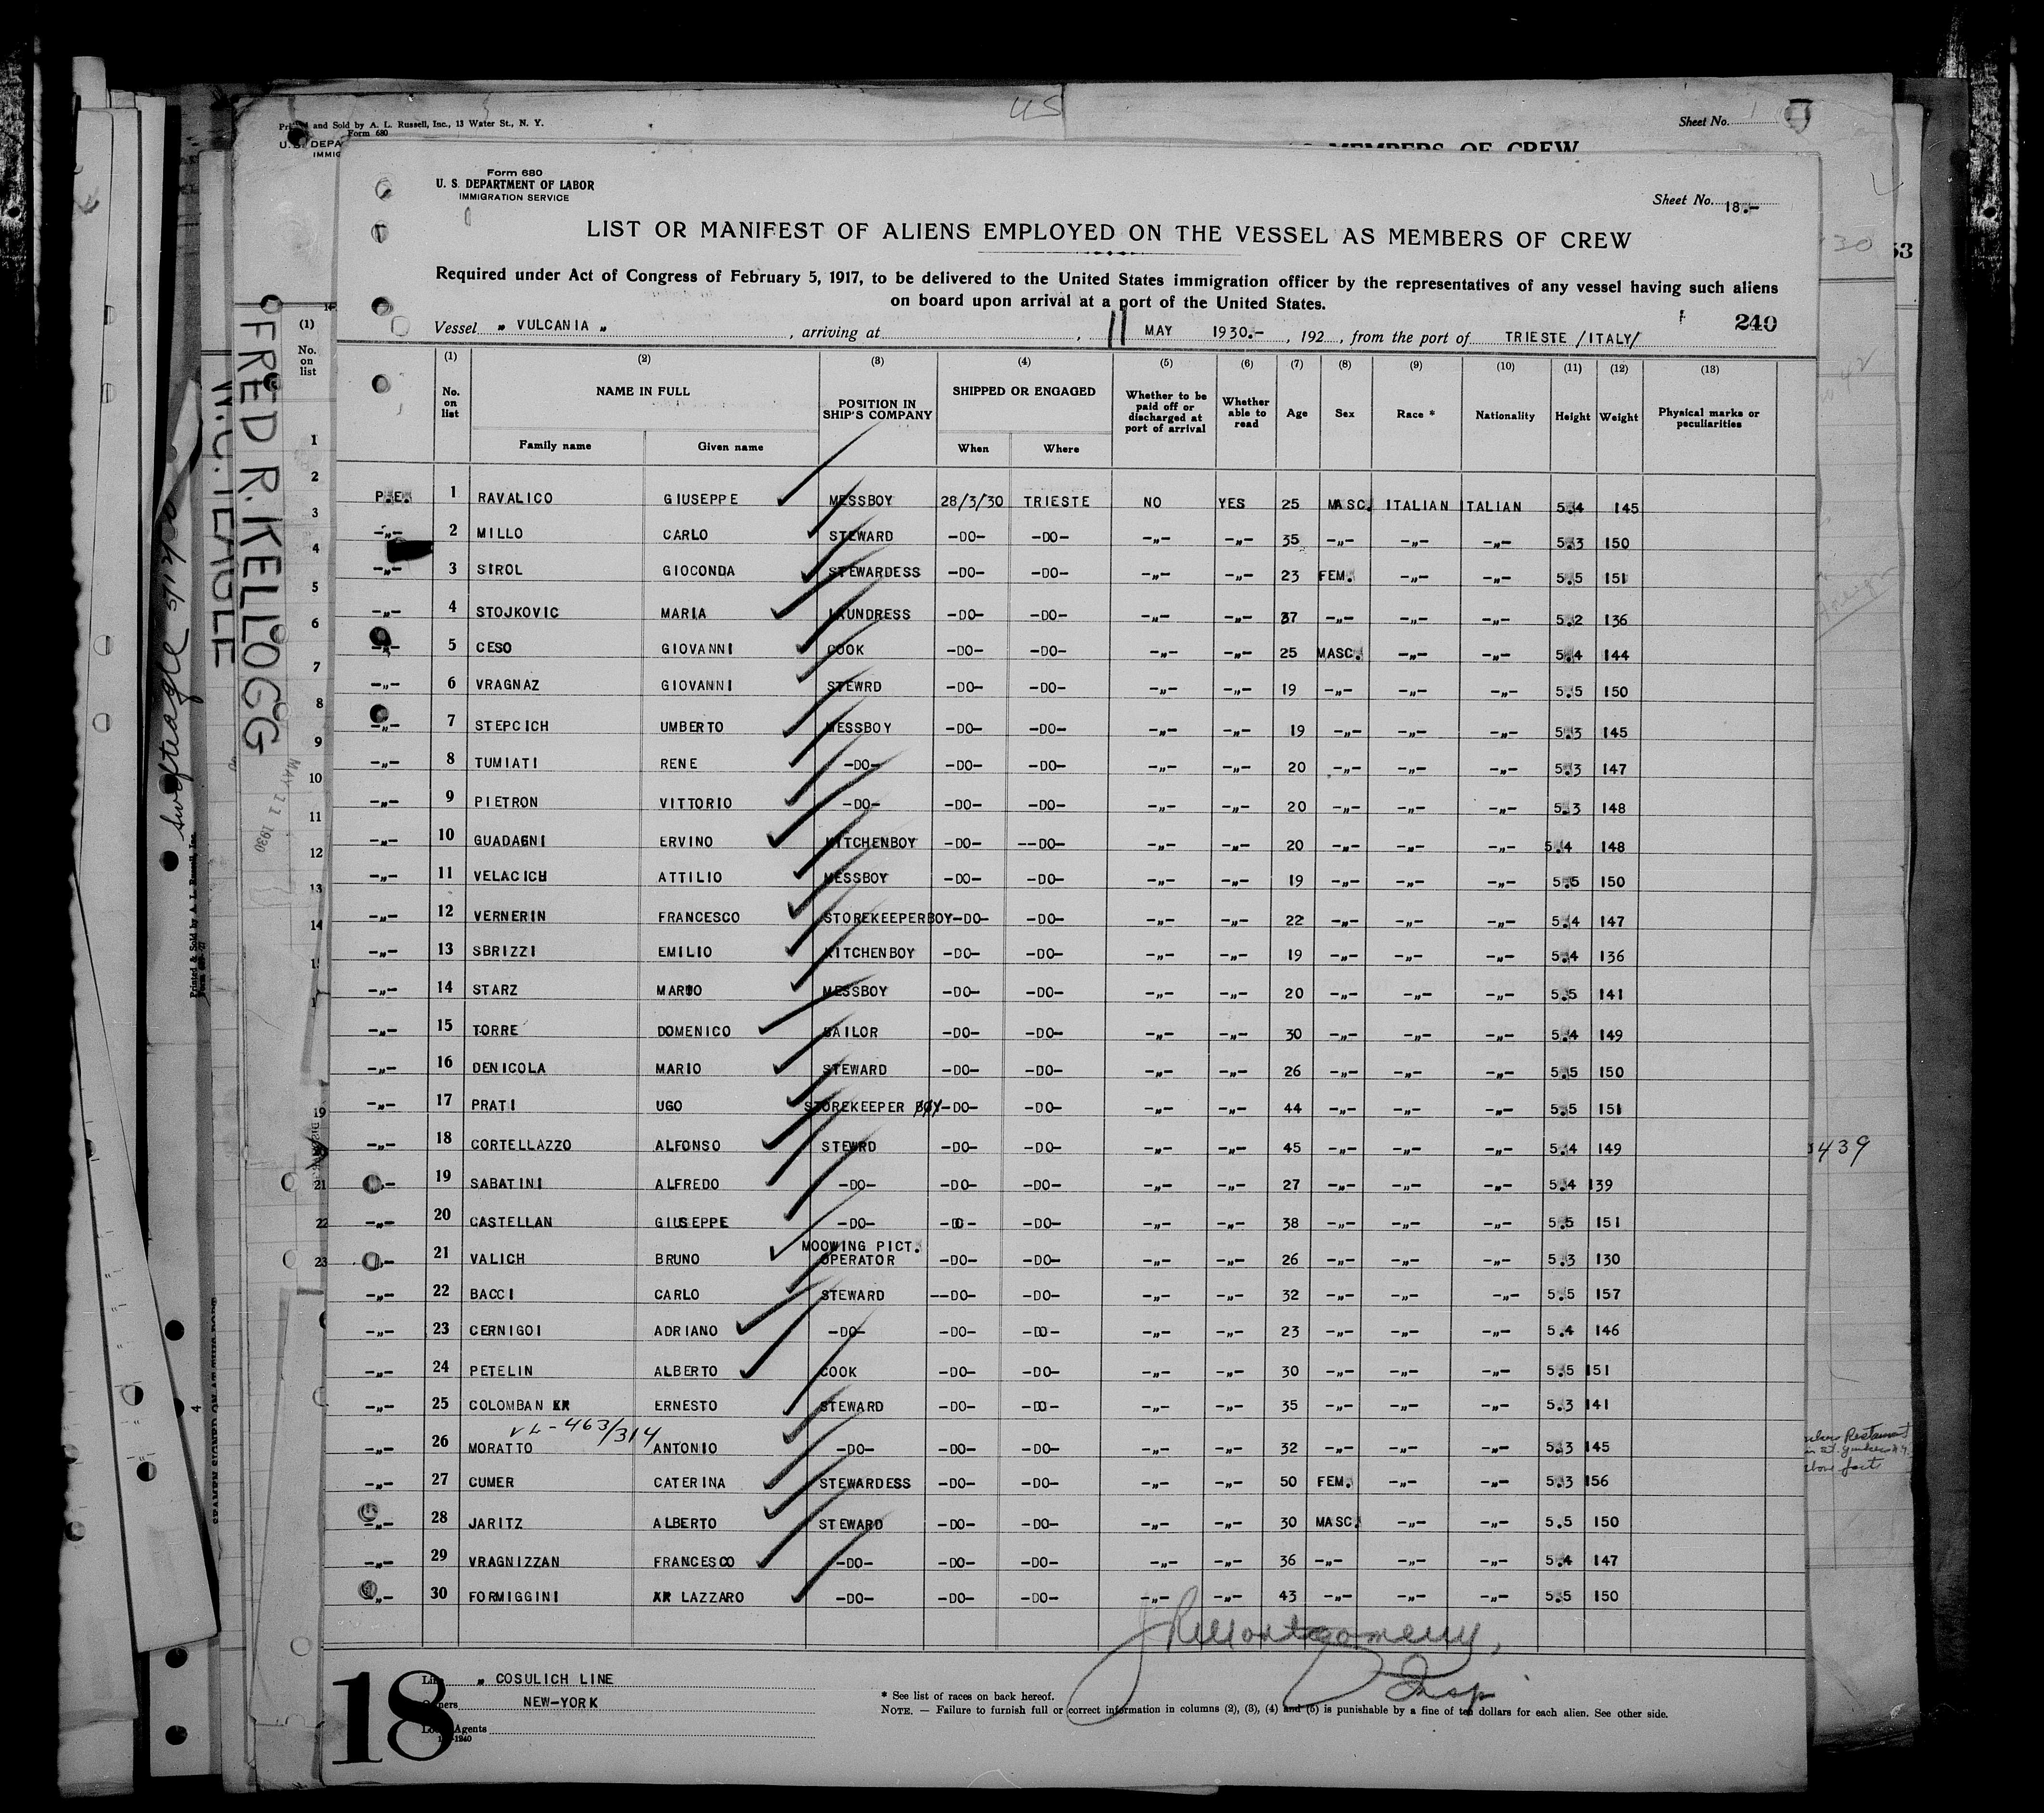 US
Printed and Sold by A. L. Russell, Inc., 13 Water St., N. Y.
Form 680
Sheet No. 1
MEMBERS OF CREW
Form 680
U. S. DEPARTMENT OF LABOR
IMMIGRATION SERVICE
Sheet No. 18.-
LIST OR MANIFEST OF ALIENS EMPLOYED ON THE VESSEL AS MEMBERS OF CREW
Required under Act of Congress of February 5, 1917, to be delivered to the United States immigration officer by the representatives of any vessel having such aliens
on board upon arrival at a port of the United States.
240
Vessel „ VULCANIA „ , arriving at , 11 MAY 1930.- , 192 , from the port of TRIESTE /ITALY/
(1) (2) (3) (4) (5) (6) (7) (8) (9) (10) (11) (12) (13)
No. on list NAME IN FULL POSITION IN SHIP'S COMPANY SHIPPED OR ENGAGED Whether to be paid off or discharged at port of arrival Whether able to read Age Sex Race * Nationality Height Weight Physical marks or peculiarities
Family name Given name When Where
P.E. 1 RAVALICO GIUSEPPE MESSBOY 28/3/30 TRIESTE NO YES 25 MASC. ITALIAN ITALIAN 5.4 145
-„- 2 MILLO CARLO STEWARD -DO- -DO- -„- -„- 35 -„- -„- -„- 5.3 150
-„- 3 SIROL GIOCONDA STEWARDESS -DO- -DO- -„- -„- 23 FEM. -„- -„- 5.5 151
-„- 4 STOJKOVIC MARIA LAUNDRESS -DO- -DO- -„- -„- 37 -„- -„- -„- 5.2 136
-„- 5 CESO GIOVANNI COOK -DO- -DO- -„- -„- 25 MASC. -„- -„- 5.4 144
-„- 6 VRAGNAZ GIOVANNI STEWRD -DO- -DO- -„- -„- 19 -„- -„- -„- 5.5 150
-„- 7 STEPCICH UMBERTO MESSBOY -DO- -DO- -„- -„- 19 -„- -„- -„- 5.3 145
-„- 8 TUMIATI RENE -DO- -DO- -DO- -„- -„- 20 -„- -„- -„- 5.3 147
-„- 9 PIETRON VITTORIO -DO- -DO- -DO- -„- -„- 20 -„- -„- -„- 5.3 148
-„- 10 GUADAGNI ERVINO KITCHENBOY -DO- --DO- -„- -„- 20 -„- -„- -„- 5.4 148
-„- 11 VELACICH ATTILIO MESSBOY -DO- -DO- -„- -„- 19 -„- -„- -„- 5.5 150
-„- 12 VERNERIN FRANCESCO STOREKEEPERBOY -DO- -DO- -„- -„- 22 -„- -„- -„- 5.4 147
-„- 13 SBRIZZI EMILIO KITCHENBOY -DO- -DO- -„- -„- 19 -„- -„- -„- 5.4 136
-„- 14 STARZ MARIO MESSBOY -DO- -DO- -„- -„- 20 -„- -„- -„- 5.5 141
-„- 15 TORRE DOMENICO SAILOR -DO- -DO- -„- -„- 30 -„- -„- -„- 5.4 149
-„- 16 DENICOLA MARIO STEWARD -DO- -DO- -„- -„- 26 -„- -„- -„- 5.5 150
-„- 17 PRATI UGO STOREKEEPER BOY -DO- -DO- -„- -„- 44 -„- -„- -„- 5.5 151
-„- 18 CORTELLAZZO ALFONSO STEWRD -DO- -DO- -„- -„- 45 -„- -„- -„- 5.4 149
-„- 19 SABATINI ALFREDO -DO- -DO- -DO- -„- -„- 27 -„- -„- -„- 5.4 139
-„- 20 CASTELLAN GIUSEPPE -DO- -DO- -DO- -„- -„- 38 -„- -„- -„- 5.5 151
-„- 21 VALICH BRUNO MOOWING PICT. OPERATOR -DO- -DO- -„- -„- 26 -„- -„- -„- 5.3 130
-„- 22 BACCI CARLO STEWARD --DO- -DO- -„- -„- 32 -„- -„- -„- 5.5 157
-„- 23 CERNIGOI ADRIANO -DO- -DO- -DO- -„- -„- 23 -„- -„- -„- 5.4 146
-„- 24 PETELIN ALBERTO COOK -DO- -DO- -„- -„- 30 -„- -„- -„- 5.5 151
-„- 25 COLOMBAN ERNESTO STEWARD -DO- -DO- -„- -„- 35 -„- -„- -„- 5.3 141
VL-463/314
-„- 26 MORATTO ANTONIO -DO- -DO- -DO- -„- -„- 32 -„- -„- -„- 5.3 145
-„- 27 CUMER CATERINA STEWARDESS -DO- -DO- -„- -„- 50 FEM. -„- -„- 5.3 156
-„- 28 JARITZ ALBERTO STEWARD -DO- -DO- -„- -„- 30 MASC. -„- -„- 5.5 150
-„- 29 VRAGNIZZAN FRANCESCO -DO- -DO- -DO- -„- -„- 36 -„- -„- -„- 5.4 147
-„- 30 FORMIGGINI LAZZARO -DO- -DO- -DO- -„- -„- 43 -„- -„- -„- 5.5 150
JRMontgomery,
Insp
18
Line „ COSULICH LINE
Owners NEW-YORK
Local Agents
* See list of races on back hereof.
NOTE. — Failure to furnish full or correct information in columns (2), (3), (4) and (5) is punishable by a fine of ten dollars for each alien. See other side.
FRED R. KELLOGG
W.C. TEAGLE
MAY 11 1930
(1)
No. on list
53
439